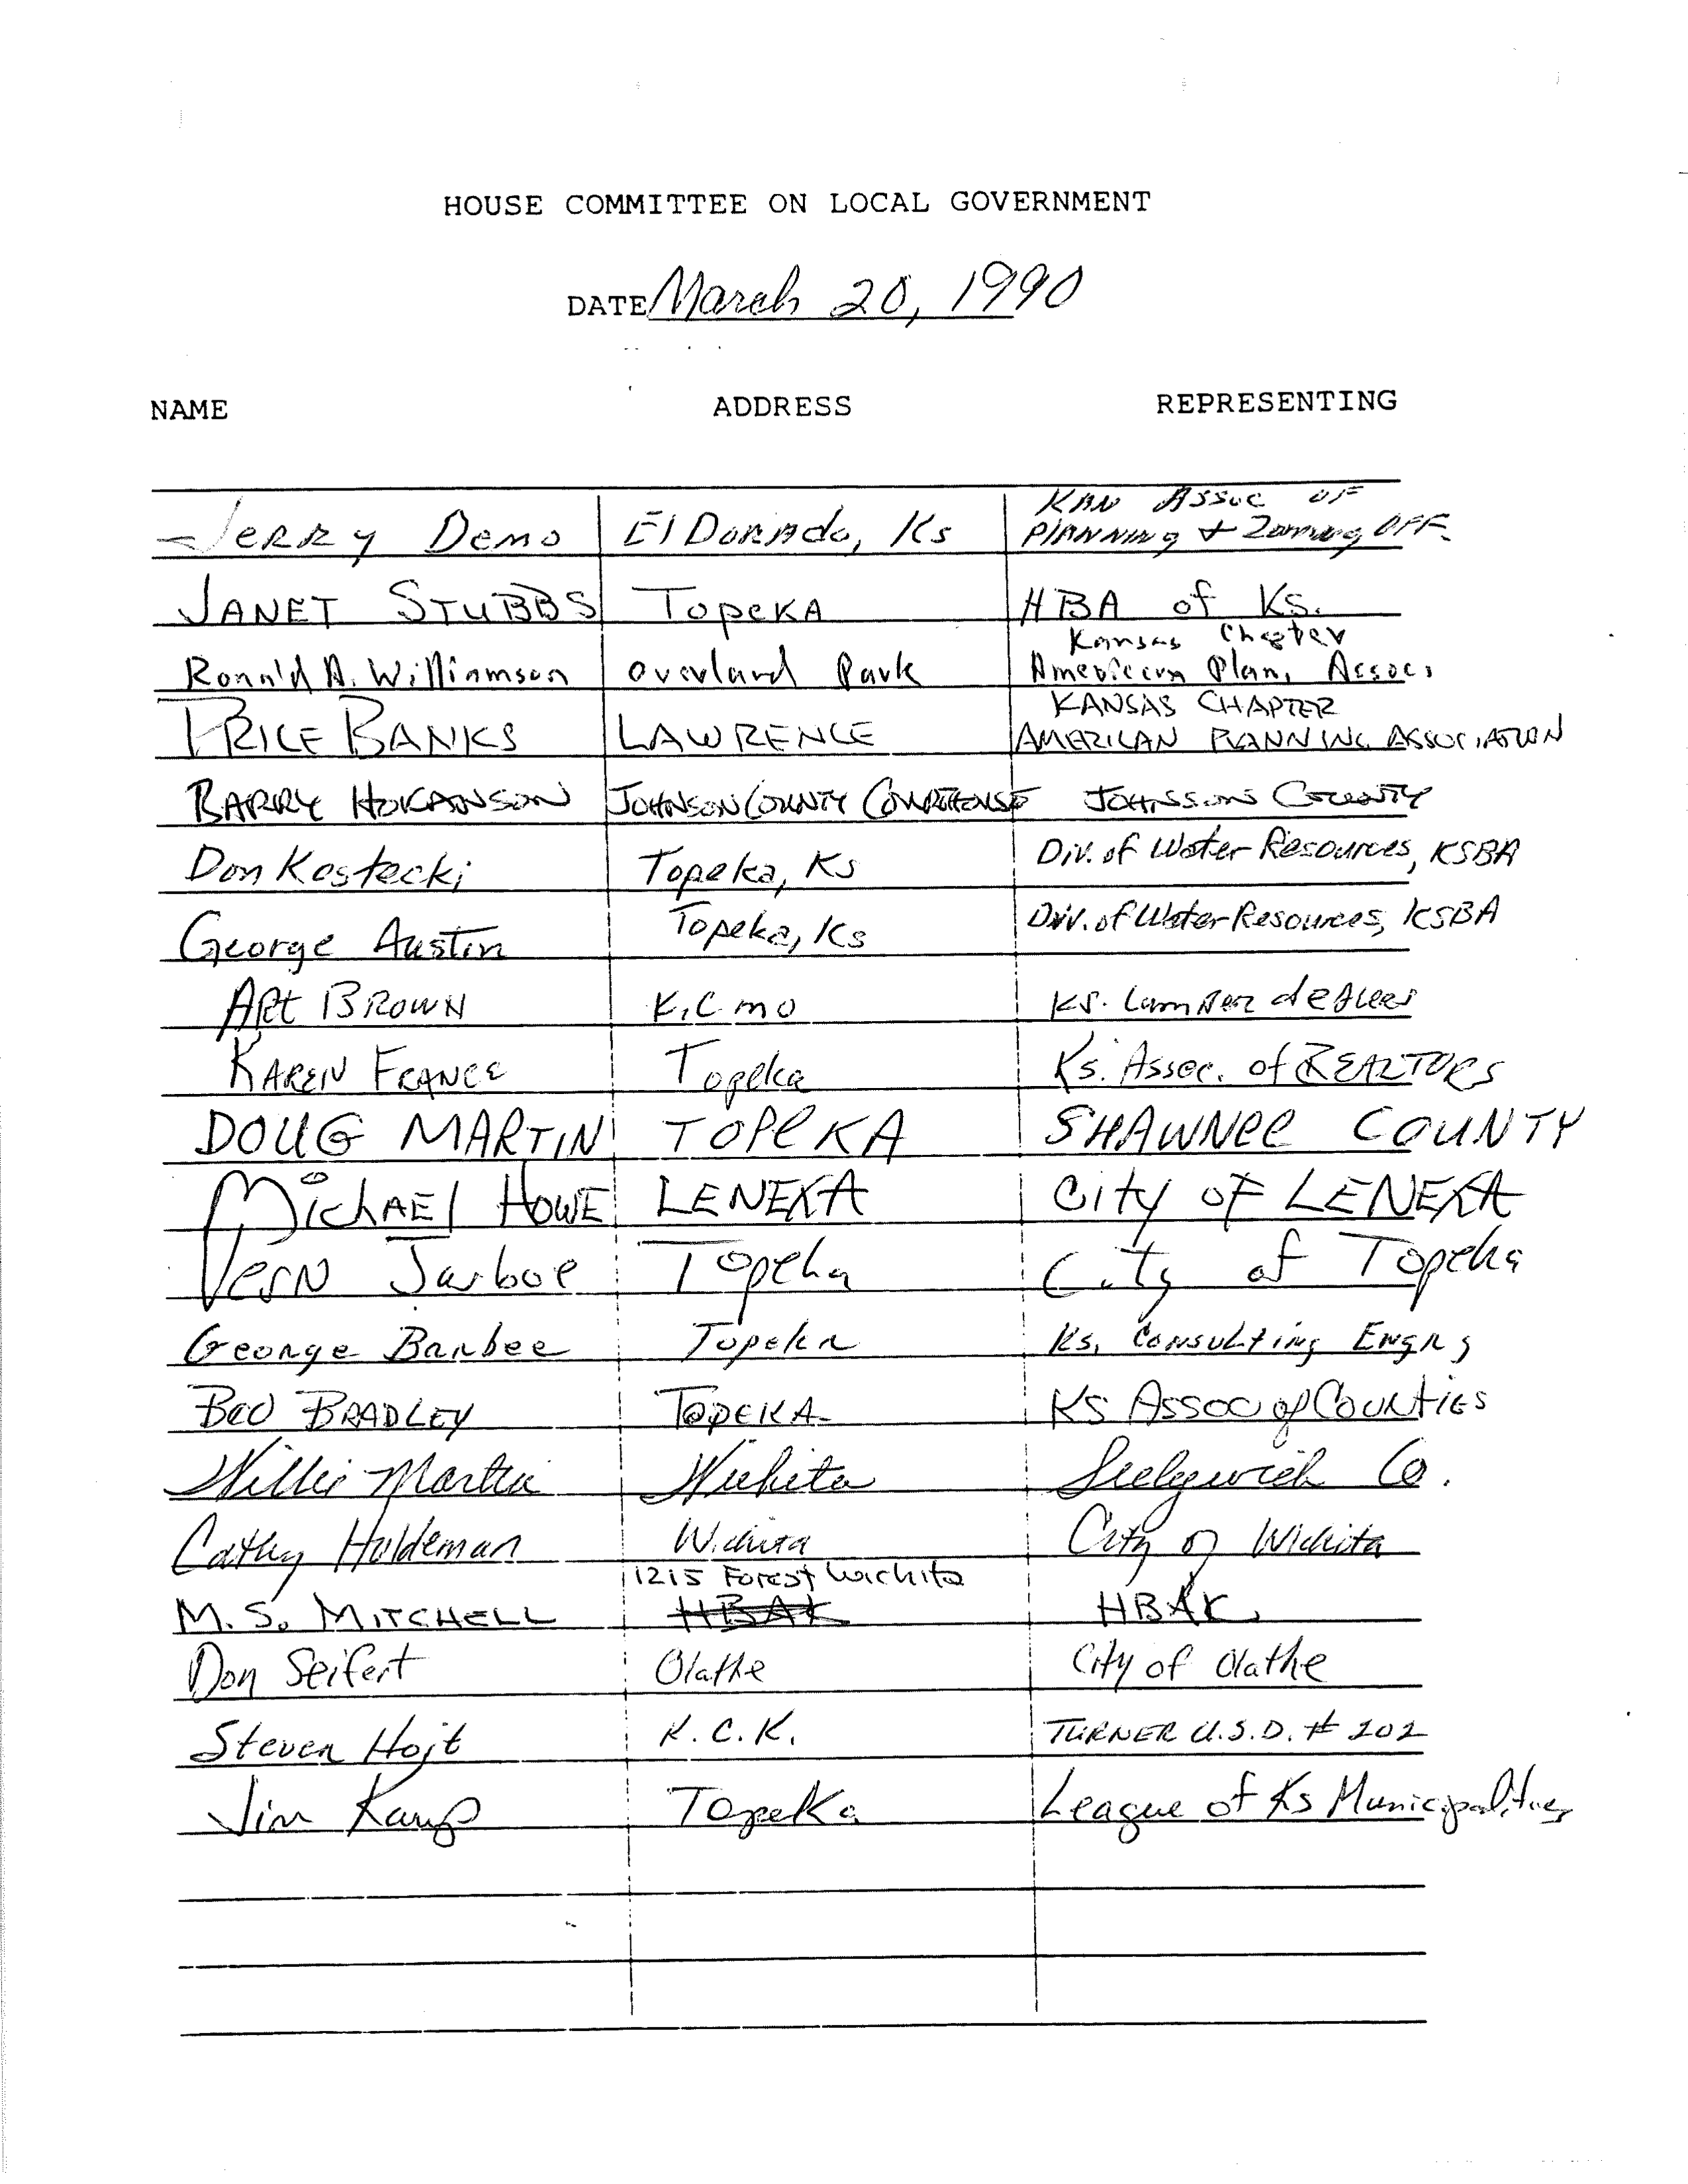 HOUSE COMMITTEE ON LOCAL GOVERNMENT
DATE March 20, 1990
NAME ADDRESS REPRESENTING
KAN ASSOC OF
Jerry Demo El Dorado, Ks PLANNING & Zoning OFF.
JANET STUBBS TopeKA HBA of Ks.
Kansas Chapter
Ronald A. Williamson Overland Park American Plan. Assoc.
KANSAS CHAPTER
PRICE BANKS LAWRENCE AMERICAN PLANNING ASSOCIATION
BARRY HOKANSON JOHNSON COUNTY COURTHOUSE JOHNSON COUNTY
Don Kostecki Topeka, Ks Div. of Water Resources, KSBA
George Austin Topeka, Ks Div. of Water Resources, KSBA
ART BROWN K.C. mo KS. Lumber dealers
KAREN FRANCE Topeka Ks. Assoc. of REALTORS
DOUG MARTIN TOPeKA SHAWNee COUNTY
MichAEl HOWE LENEXA City OF LENEXA
Vern Jarboe Topeka City of Topeka
George Barbee Topeka Ks. Consulting Engrs
BEV BRADLEY TOPEKA KS ASSOC of COUNTIES
Willie Martin Wichita Sedgwick Co.
Cathy Holdeman Wichita City of Wichita
1215 Forest Wichita
M. S. MITCHELL HBAK HBAK
Don Seifert Olathe City of Olathe
Steven Hoit K.C.K. TURNER U.S.D. # 202
Jim Kaup Topeka League of Ks Municipalities